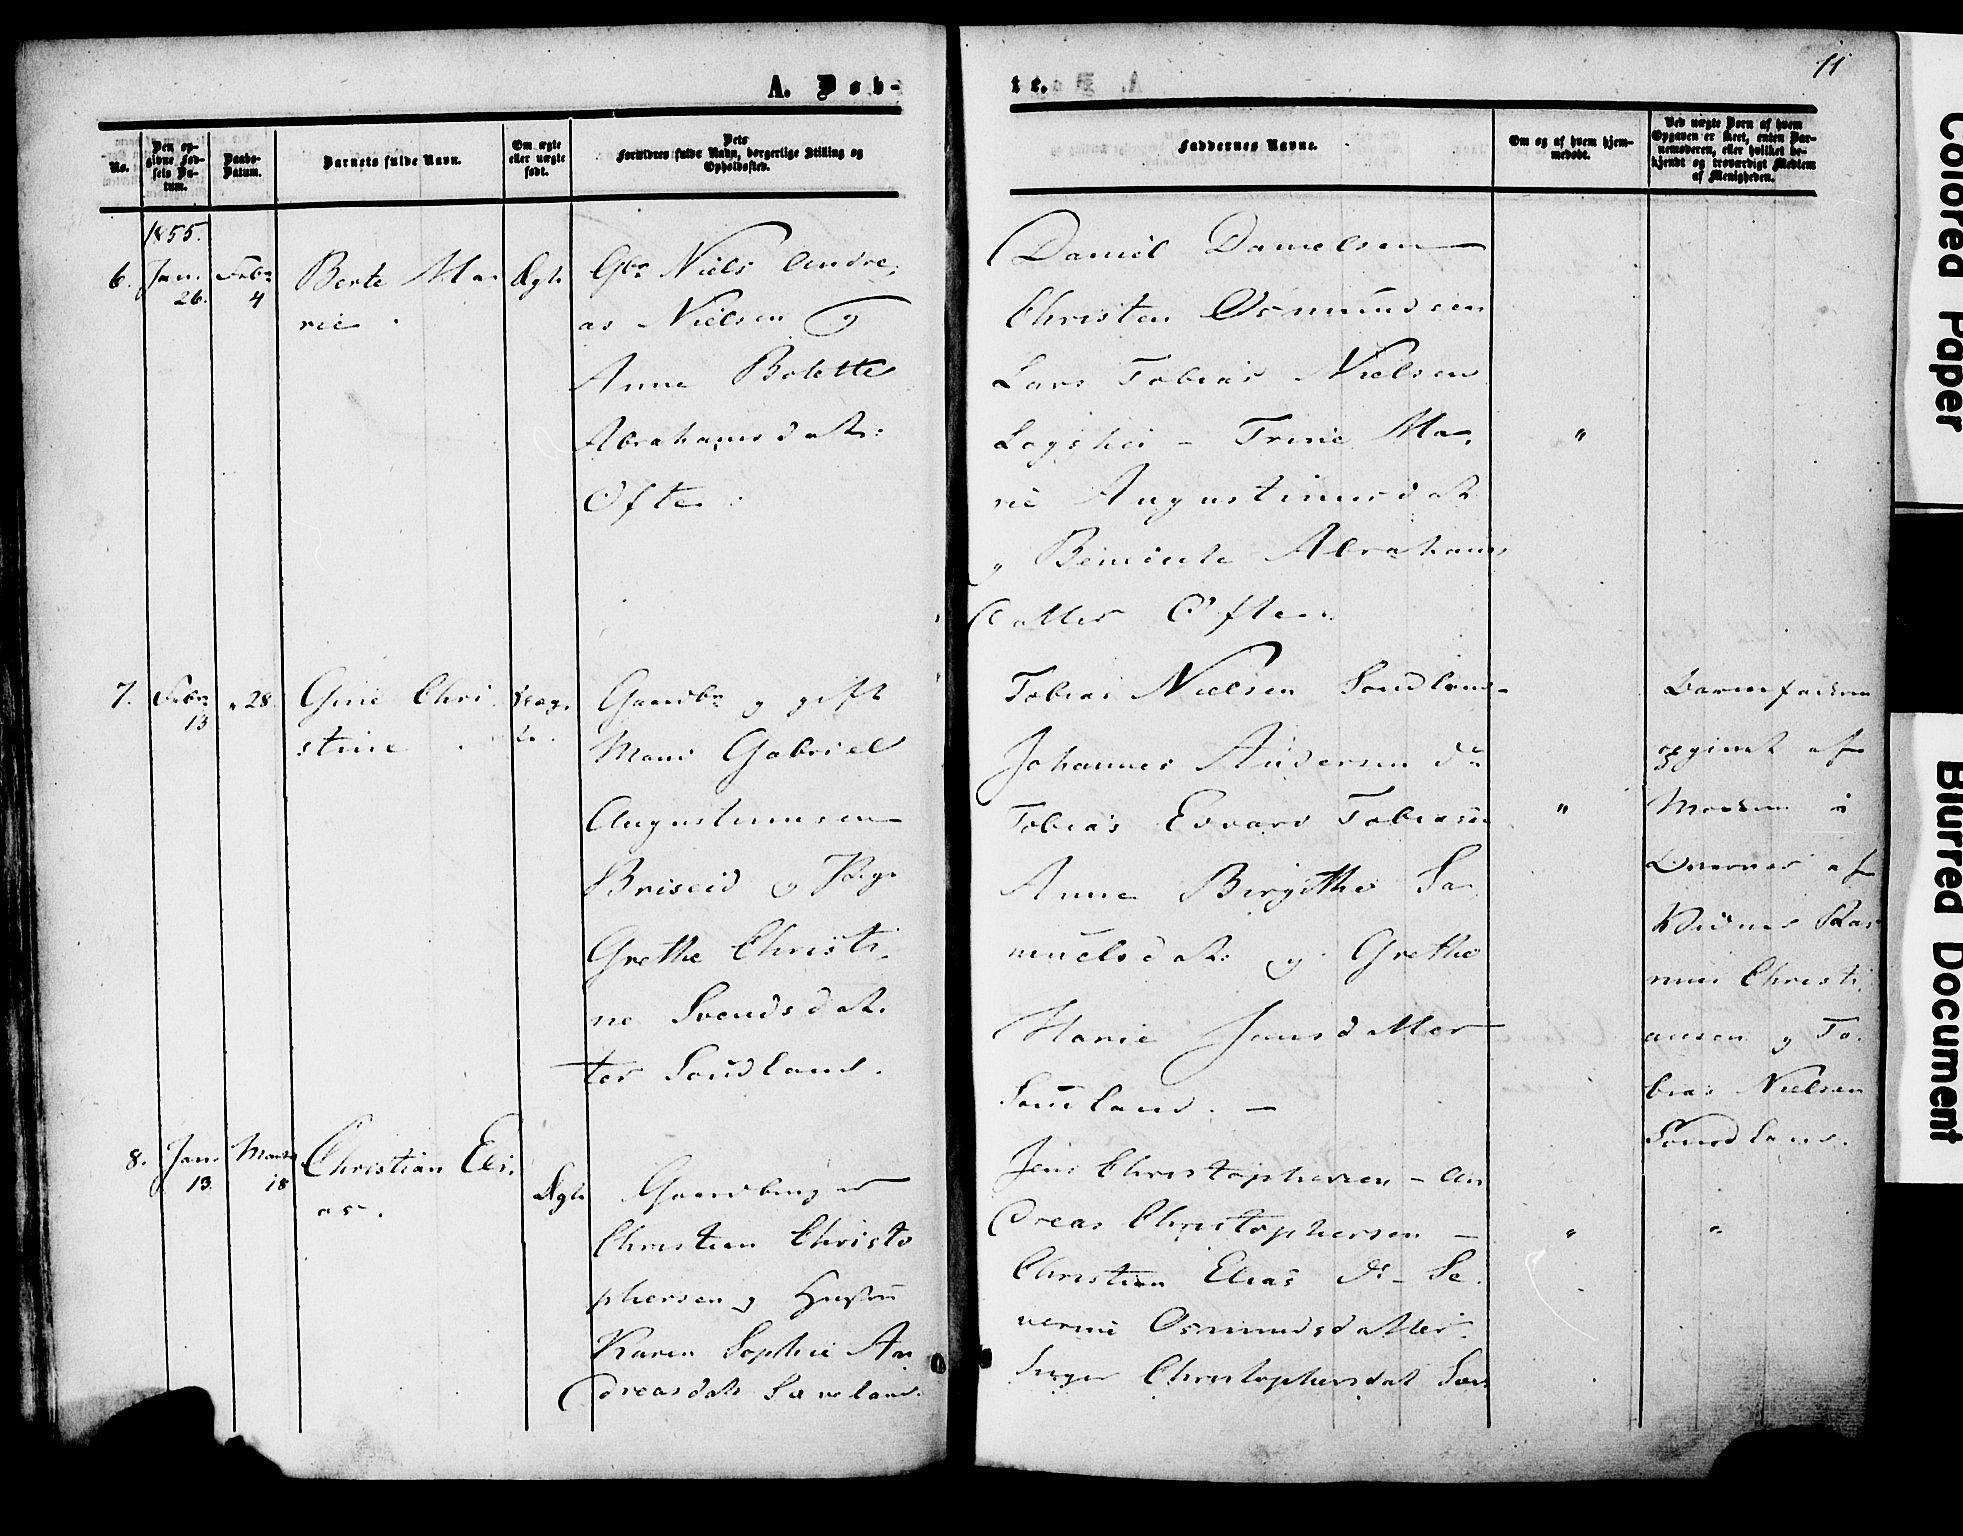 11
A. Døb-
te.
No.
Den op-
givne Fød-
sels Da-
tum.
Daabs-
Datum.
Barnets fulde Navn.
Om ægte
eller uægte
født.
Dets
Forældres fulde Navn, borgerlige Stilling og
Opholdssted.
Faddernes Navne.
Om og af hvem hjem-
medøbt.
Ved uægte Børn af hvem
Opgaven er skeet, enten Bar-
nemoderen, eller hvilket be-
kjendt og troværdigt Medlem
af Menigheden.
1855.
6.
Jan.
26.
Febr
4
Berte Ma-
rie.
Ægte
Gbr Niels Andre-
as Nielsen og
Anne Bolette
Abrahamsdatr:
Ofte:
Daniel Danielsen
Christen Osmundsen
Lars Tobias Nielsen
Trine Ma-
rie Augustinusdatr
og Abrahams
datter Ofte.
"
7.
Febr
13
" 28.
Gine Chri-
stine.
Uæg-
te.
Gaardbr og gift
Mand Gabriel
Augustinusen
Briseid og Pige
Grethe Christi-
ne Svendsdat-
ter Soudland.
Tobias Nielsen Soudland-
Johannes Andersen do
Tobias Edvard Tobiasen
Anne Birgithe Sa-
muelsdatr: og Grethe
Marie Jensdatter
Soudland. -
"
Barnefaderen
opgivet af
Moderen i
Overvær af
Vidner Ras-
mus Christi-
ansen og To-
bias Nielsen
Soudland.
8.
Jan.
13.
Marts
18
Christian Eli-
as.
Ægte
Gaardbruger
Christen Christo
phersen og Hustru
Karen Sophie An
dreasdatr
Jens Christophersen - An
dreas Christophersen -
Christian Elias do - Se-
verine Osmundsdatter.
Christophersdat
"
"
Colored Paper
Blurred Document